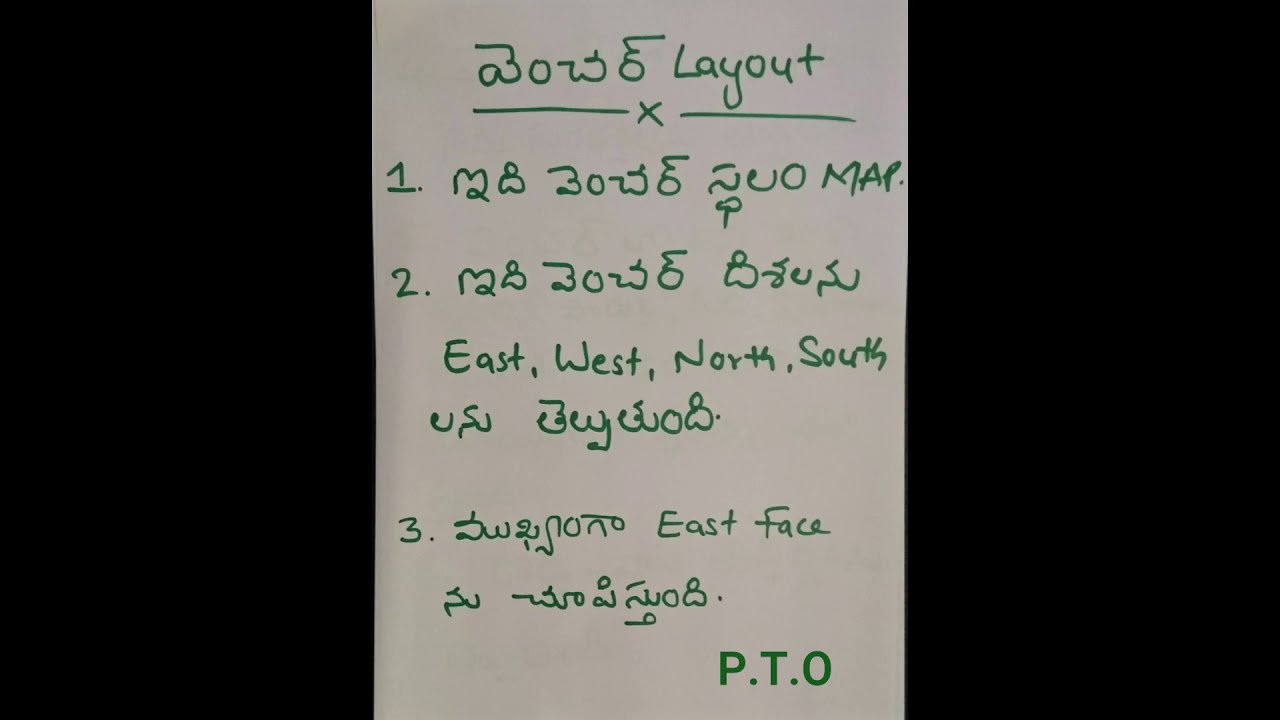 వెంచర్ Layout
x
1. ఇది వెంచర్ స్థలం MAP.
2. ఇది వెంచర్ దిశలను
East, West, North, South
లను తెల్పుతుంది.
3. ముఖ్యంగా East Face
ను చూపిస్తుంది.
P.T.O